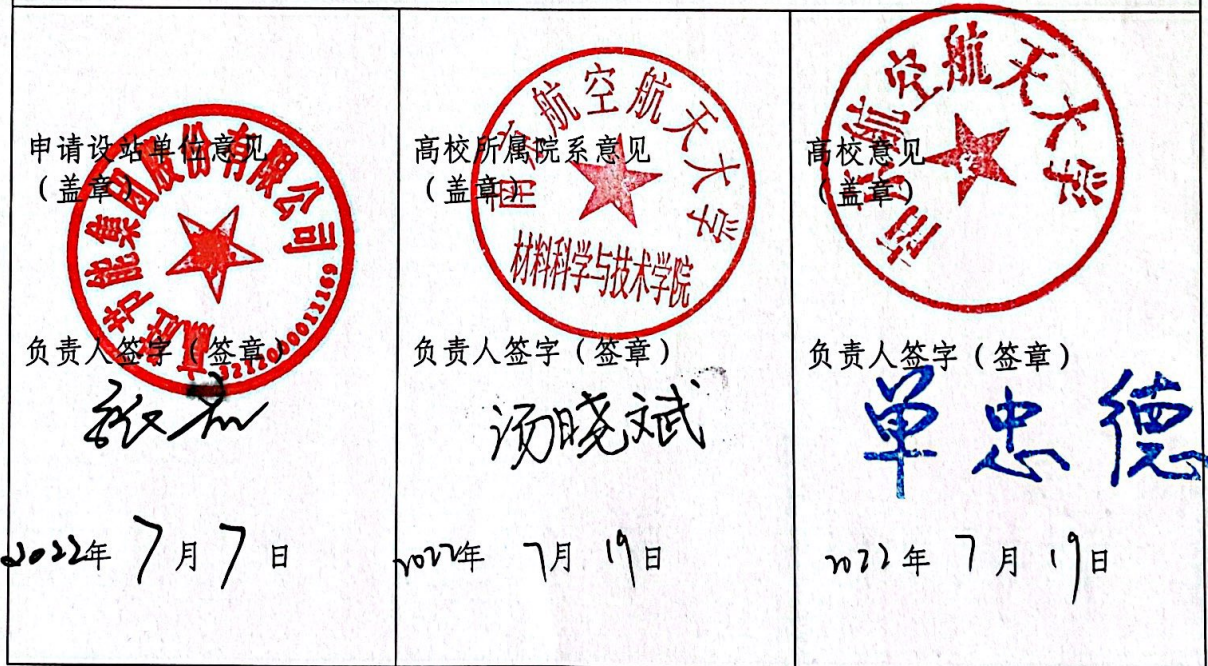 申请设站单位意见
（盖章）
节能集团股份有限公司
3212000011169
负责人签字（签章）
2022年 7月 7日
高校所属院系意见
（盖章）
南京航空航天大学
材料科学与技术学院
负责人签字（签章）
汤晓斌
2022年 7月 19日
高校意见
（盖章）
南京航空航天大学
负责人签字（签章）
单忠德
2022年 7月 19日